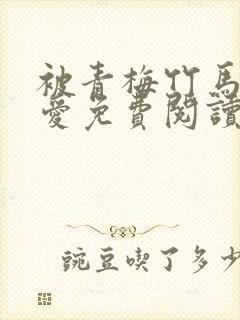 被青梅竹馬
愛免費閱讀
豌豆喫了多少